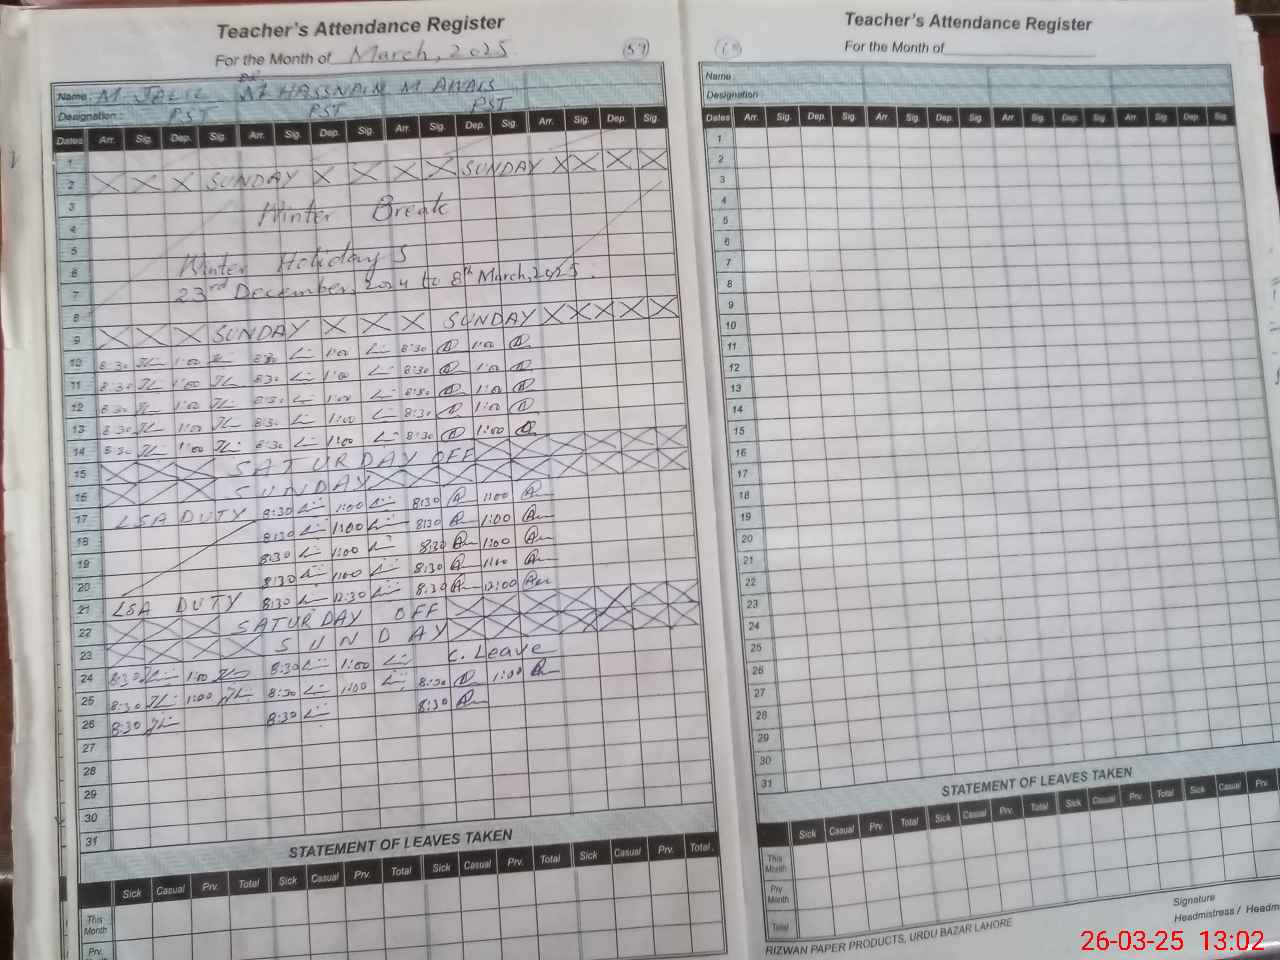 Teacher's Attendance Register
For the Month of March, 2025 (59)
Name : M JALIL M HASSNAIN M AWAIS
Designation : PST PST PST
Dates Arr. Sig. Dep. Sig. Arr. Sig. Dep. Sig. Arr. Sig. Dep. Sig. Arr. Sig. Dep. Sig.
1
2 X X X SUNDAY X X X X SUNDAY X X X X
3 Winter Break
4
5
6 Winter Holidays
7 23rd December, 2024 to 8th March, 2025.
8
9 X X X SUNDAY X X X SUNDAY X X X X X
10 8:30 1:00 8:30 1:00 8:30 1:00
11 8:30 1:00 8:30 1:00 8:30 1:00
12 8:30 1:00 8:30 1:00 8:30 1:00
13 8:30 1:00 8:30 1:00 8:30 1:00
14 8:30 1:00 8:30 1:00 8:30 1:00
15 SATURDAY OFF
16 SUNDAY
17 LSA DUTY 8:30 1:00 8:30 1:00
18 8:30 1:00 8:30 1:00
19 8:30 1:00 8:30 1:00
20 8:30 1:00 8:30 1:00
21 LSA DUTY 8:30 12:30 8:30 12:00
22 SATURDAY OFF
23 SUNDAY
24 8:30 1:00 8:30 1:00 C. Leave
25 8:30 1:00 8:30 1:00 8:30 1:00
26 8:30 8:30 8:30
27
28
29
30
31
STATEMENT OF LEAVES TAKEN
Sick Casual Prv. Total Sick Casual Prv. Total Sick Casual Prv. Total Sick Casual Prv. Total.
This Month
Prv.
Teacher's Attendance Register
For the Month of
Name :
Designation :
Dates Arr. Sig. Dep. Sig. Arr. Sig. Dep. Sig. Arr. Sig. Dep. Sig. Arr. Sig. Dep. Sig.
1
2
3
4
5
6
7
8
9
10
11
12
13
14
15
16
17
18
19
20
21
22
23
24
25
26
27
28
29
30
31
STATEMENT OF LEAVES TAKEN
Sick Casual Prv. Total Sick Casual Prv. Total Sick Casual Prv. Total Sick Casual Prv.
This Month
Prv Month
Total
Signature
Headmistress /
RIZWAN PAPER PRODUCTS, URDU BAZAR LAHORE
26-03-25 13:02